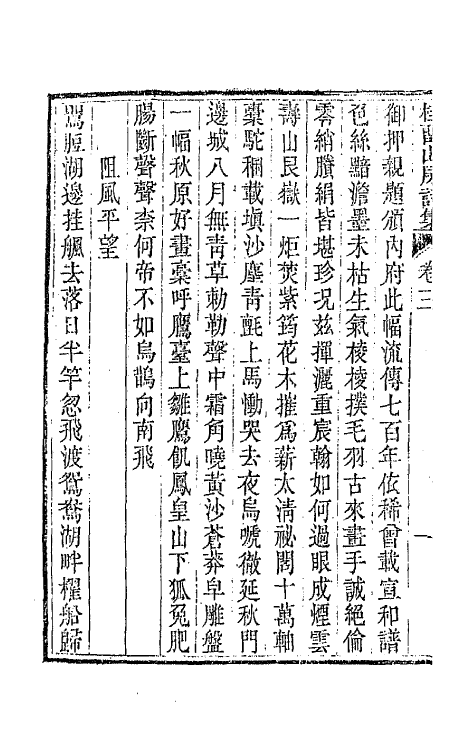 桂留山房詩集 卷三 一
御押親題頒內府此幅流傳七百年依稀曾載宣和譜
色絲黯澹墨未枯生氣棱棱撲毛羽古來畫手誠絕倫
零綃賸絹皆堪珍況茲揮灑重宸翰如何過眼成煙雲
壽山艮嶽一炬焚紫筠花木摧爲薪太淸祕閣十萬軸
橐駝稇載塡沙塵靑氈上馬慟哭去夜烏嗁徹延秋門
邊城八月無靑草勅勒聲中霜角曉黃沙蒼莽皁雕盤
一幅秋原好畫稾呼鷹臺上雛鷹飢鳳皇山下狐兔肥
腸斷聲聲柰何帝不如烏鵲向南飛
阻風平望
鶯脰湖邊挂颿去落日半竿忽飛渡鴛鴦湖畔櫂船歸